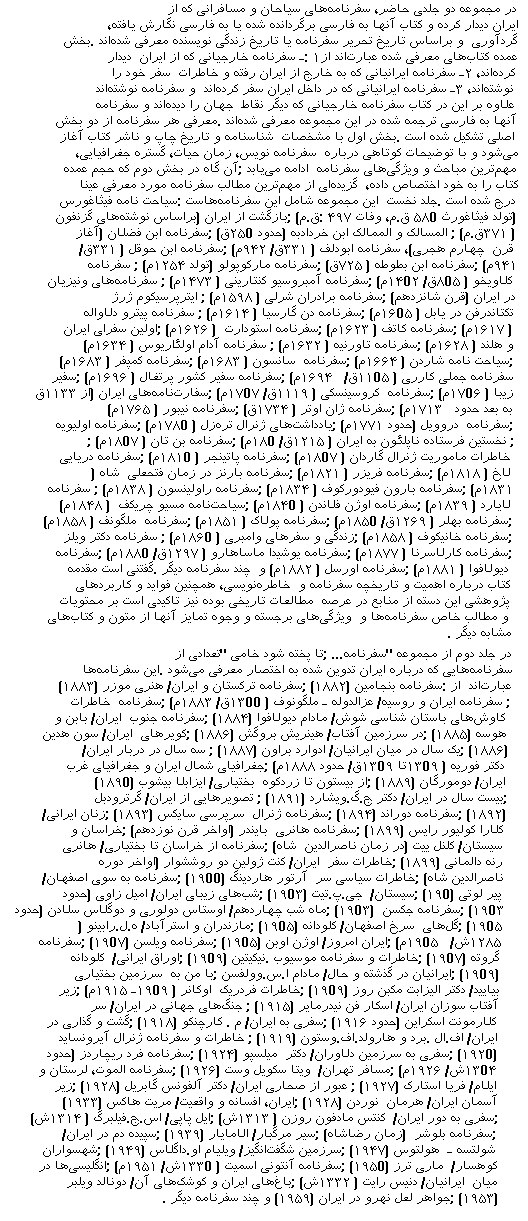 در مجموعه دو جلدی حاضر، سفرنامه‌های سیاحان و مسافرانی که از
ایران دیدار کرده و کتاب آنها به فارسی برگردانده شده یا به فارسی نگارش یافته،
گردآوری و براساس تاریخ تحریر سفرنامه یا تاریخ زندگی نویسنده معرفی شده‌اند .بخش
عمده کتاب‌های معرفی شده عبارت‌اند از۱ :ـ سفرنامه خارجیانی که از ایران دیدار
کرده‌اند، ۲ـ سفرنامه ایرانیانی که به خارج از ایران رفته و خاطرات سفر خود را
نوشته‌اند، ۳ـ سفرنامه ایرانیانی که در داخل ایران سفر کرده‌اند و سفرنامه نوشته‌اند
علاوه بر این در کتاب سفرنامه خارجیانی که دیگر نقاط جهان را دیده‌اند و سفرنامه
آنها به فارسی ترجمه شده در این مجموعه معرفی شده‌اند .معرفی هر سفرنامه از دو بخش
اصلی تشکیل شده است .بخش اول با مشخصات شناسنامه و تاریخ چاپ و ناشر کتاب آغاز
می‌شود و با توضیحات کوتاهی درباره سفرنامه نویس، زمان حیات، گستره جغرافیایی،
مهم‌ترین مباحث و ویژگی‌های سفرنامه ادامه می‌یابد ;آن گاه در بخش دوم که حجم عمده
کتاب را به خود اختصاص داده، گزیده‌ای از مهم‌ترین مطالب سفرنامه مورد معرفی عینا
درج شده است .جلد نخست این مجموعه شامل این سفرنامه‌هاست :سیاحت نامه فیثاغورس
(تولد فیثاغورث ۵۸۰ ق.م، وفات ۴۹۷ :ق.م) ;بازگشت از ایران (براساس نوشته‌های گزنفون
( ۳۷۱ق.م) ; المسالک و الممالک ابن خردادبه (حدود ۲۵۰ق) ;سفرنامه ابن فضلان (آغاز
قرن چهارم هجری)، سفرنامه ابودلف ( ۳۳۱ق/ ۹۴۲م) ;سفرنامه ابن حوقل ( ۳۳۱ق/
۹۴۱م) ;سفرنامه ابن بطوطه ( ۷۲۵ق) ;سفرنامه مارکوپولو (تولد ۱۲۵۴م) ; سفرنامه
کلاویخو ( ۸۰۵ق/ ۱۴۰۲م) ;سفرنامه آمبروسیو کنتارینی ( ۱۴۷۳م) ; سفرنامه‌های ونیزیان
در ایران (قرن شانزدهم) ;سفرنامه برادران شرلی ( ۱۵۹۸م) ; ایترپرسیکوم ژرژ
تکتاندرفن در یابل ( ۱۶۰۵م) ;سفرنامه دن گارسیا ( ۱۶۱۴م) ; سفرنامه پیترو دلاواله
( ۱۶۱۷م) ;سفرنامه کاتف ( ۱۶۲۳م) ;سفرنامه استودارت ( ۱۶۲۶م) ;اولین سفرای ایران
و هلند ( ۱۶۲۸م) ;سفرنامه تاورنیه ( ۱۶۳۲م) ; سفرنامه آدام اولئاریوس ( ۱۶۳۴م)
;سیاحت نامه شاردن ( ۱۶۶۴م) ;سفرنامه سانسون ( ۱۶۸۳م) ;سفرنامه کمپفر ( ۱۶۸۳م)
سفرنامه جملی کارری ( ۱۱۰۵ق/ ۱۶۹۴م) ;سفرنامه سفیر کشور پرتغال ( ۱۶۹۶م) ;سفیر
زیبا ( ۱۷۰۶م) ;سفرنامه کروسینسکی ( ۱۱۱۹ق/ ۱۷۰۷م) ;سفارت‌نامه‌های ایران (از ۱۱۳۳ق
به بعد حدود ۱۷۱۳م) ;سفرنامه ژان اوتر ( ۱۷۳۴ق) ;سفرنامه نیبور ( ۱۷۶۵م)
;سفرنامه دروویل (حدود ۱۷۷۱م) ;یادداشت‌های ژنرال تره‌زل ( ۱۷۸۰م) ;سفرنامه اولیویه
; نخستین فرستاده ناپلئون به ایران ( ۱۲۱۵ق/ ۱۸۰م) ;سفرنامه بن تان ( ۱۸۰۷م) ;
خاطرات ماموریت ژنرال گاردان ( ۱۸۰۷م) ;سفرنامه پاتینجر ( ۱۸۱۰م) ;سفرنامه دریایی
لاخ ( ۱۸۱۸م) ;سفرنامه فریزر ( ۱۸۲۱م) ;سفرنامه بارنز در زمان فتحعلی شاه (
۱۸۳۱م) ;سفرنامه بارون فیودورکوف ( ۱۸۳۴م) ;سفرنامه راولینسون ( ۱۸۳۸م) ; سفرنامه
لایارد ( ۱۸۳۹م) ;سفرنامه اوژن فلاندن ( ۱۸۴۰م) ;سیاحت‌نامه مسیو چریکف ( ۱۸۴۸م)
;سفرنامه بهلر ( ۱۲۶۹ق/ ۱۸۵۰م) ;سفرنامه پولاک ( ۱۸۵۱م) ;سفرنامه ملگونف ( ۱۸۵۸م)
;سفرنامه خانیکوف ( ۱۸۵۸م) ;زندگی و سفرهای وامبری ( ۱۸۶۰م) ; سفرنامه دکتر ویلز
;سفرنامه کارلاسرنا ( ۱۸۷۷م) ;سفرنامه یوشیدا ماساهارو ( ۱۲۹۷ق/ ۱۸۸۰م) ;سفرنامه
دیولافوا ( ۱۸۸۱م) ;سفرنامه اورسل ( ۱۸۸۲م) و چند سفرنامه دیگر .گفتنی است مقدمه
کتاب درباره اهمیت و تاریخچه سفرنامه و خاطره‌نویسی، همچنین فواید و کاربردهای
پژوهشی این دسته از منابع در عرصه مطالعات تاریخی بوده نیز تاکیدی است بر محتویات
و مطالب خاص سفرنامه‌ها و ویژگی‌های برجسته و وجوه تمایز آنها از متون و کتاب‌های
مشابه دیگر .
در جلد دوم از مجموعه "سفرنامه... ;تا پخته شود خامی "تعدادی از
سفرنامه‌هایی که درباره ایران تدوین شده به اختصار معرفی می‌شود .این سفرنامه‌ها
عبارت‌اند از :سفرنامه بنجامین (۱۸۸۲) ;سفرنامه ترکستان و ایران/ هنری موزر (۱۸۸۳)
; سفرنامه ایران و روسیه/ عزالدوله ـ ملگونوف ( ۱۳۰۰ق/ ۱۸۸۳م) ;سفرنامه خاطرات
کاوش‌های باستان شناسی شوش/ مادام دیولافوا (۱۸۸۴) ;سفرنامه جنوب ایران/ بابن و
هوسه (۱۸۸۵) ;در سرزمین آفتاب/ هینریش بروگش (۱۸۸۶) ;کویرهای ایران/ سون هدین
(۱۸۸۶) ;یک سال در میان ایرانیان/ ادوارد براون (۱۸۸۷) ; سه سال در دربار ایران/
دکتر فوریه ( ۱۳۰۹تا ۱۳۰۹ق/ حدود ۱۸۸۸م) ;جغرافیای شمال ایران و جغرافیای غرب
ایران/ دومورگان (۱۸۸۹) ;از بیستون تا زردکوه بختیاری/ ایزابلا بیشوب (۱۸۹۰)
;بیست سال در ایران/ دکتر ج.گ.ویشارد (۱۸۹۱) ; تصویرهایی از ایران/ گرترودبل
(۱۸۹۲) ;سفرنامه دوراند (۱۸۹۴) ;سفرنامه ژنرال سرپرسی سایکس (۱۸۹۳) ;زنان ایرانی/
کلارا کولیور رایس (۱۸۹۹) ;سفرنامه هانری بایندر (اواخر قرن نوزدهم) ;خراسان و
سیستان/ کلنل ییت (در زمان ناصرالدین شاه) ;سفرنامه از خراسان تا بختیاری/ هانری
رنه دالمانی (۱۸۹۹) ;خاطرات سفر ایران/ کنت ژولین دو روششوار (اواخر دوره
ناصرالدین شاه) ;خاطرات سیاسی سر آرتور هاردینگ (۱۹۰۰) ;سفرنامه به سوی اصفهان/
پیر لوتی (۱۹۰) ;سیستان/ جی.پ.تیت (۱۹۰۳) ;شب‌های زیبای ایران/ امیل زاوی (حدود
۱۹۰۳) ;سفرنامه جکسن (۱۹۰۳) ;ماه شب چهاردهم/ اوستاس دولوری و دوگلاس سلادن (حدود
۱۹۰۵) ;گل‌های سرخ اصفهان/ کلودانه (۱۹۰۵) ;مازندران و استرآباد/ ه.ل.رابینو (
۱۲۸۵ش/ ۱۹۰۵م) ;ایران امروز/ اوژن اوبن (۱۹۰۵) ;سفرنامه ویلسن (۱۹۰۷) ;سفرنامه
گروته (۱۹۰۷) ;خاطرات و سفرنامه موسیوب .نیکیتین (۱۹۰۹) ;اوراق ایرانی/ کلودانه
(۱۹۰۹) ;ایرانیان در گذشته و حال/ مادام ا.س.وولفسن ;با من به سرزمین بختیاری
بیایید/ دکتر الیزابت مکین روز (۱۹۰۹) ;خاطرات فردریک اوکانر ( ۱۹۰۹ـ ۱۹۱۵م) ;زیر
آفتاب سوزان ایران/ اسکار فن نیدرمایر (۱۹۱۵) ; جنگ‌های جهانی در ایران/ سر
کلارمونت اسکراین (حدود ۱۹۱۶) ;سفری به ایران/ م . کارچنکو (۱۹۱۸) ;گشت و گذاری در
ایران/ اف.ال .برد و هارولد.اف.وستون (۱۹۱۹) ; خاطرات و سفرنامه ژنرال آیرونساید
(۱۹۲۰) ;سفری به سرزمین دلاوران/ دکتر میلسپو (۱۹۲۴) ;سفرنامه فرد ریچاردز (حدود
۱۳۰۴ش/ ۱۹۲۶م) ;مسافر تهران/ ویتا سکویل وست (۱۹۲۶) ;سفرنامه الموت، لرستان و
ایلام/ فریا استارک (۱۹۲۷) ; عبور از صحاری ایران/ دکتر آلفونس گابریل (۱۹۲۸) ;زیر
آسمان ایران/ هرمان نوردن (۱۹۲۸) ;ایران، افسانه و واقعیت/ مریت هاکس (۱۹۳۳)
;سفری به دور ایران/ کنتس مادفون روزن ( ۱۳۱۳ش) ;ایل پاپی/ اس.ج.فیلبرگ ( ۱۳۱۴ش)
;سفرنامه بلوشر (زمان رضاشاه) ;سیر مرگبار/ الامایار (۱۹۳۹) ;سپیده دم در ایران/
شولتسه ـ هولتوس (۱۹۴۷) ;سرزمین شگفت‌انگیز/ ویلیام او.داگلاس (۱۹۴۹) ;شهسواران
کوهسار/ ماری ترز (۱۹۵۰) ;سفرنامه آنتونی اسمیت ( ۱۳۳۰ش/ ۱۹۵۱م) ;انگلیسی‌ها در
میان ایرانیان/ دنیس رایت ( ۱۳۳۲ش) ;باغ‌های ایران و کوشک‌های آن/ دونالد ویلبر
(۱۹۵۳) ;جواهر لعل نهرو در ایران (۱۹۵۹) و چند سفرنامه دیگر .